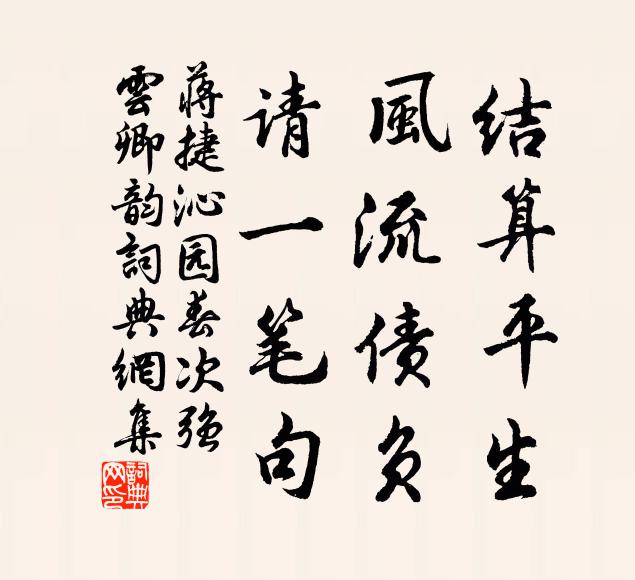 结算平生
風流债负
请一笔句
蒋捷沁园春次强
雲卿韵詞典網集
詞典网印